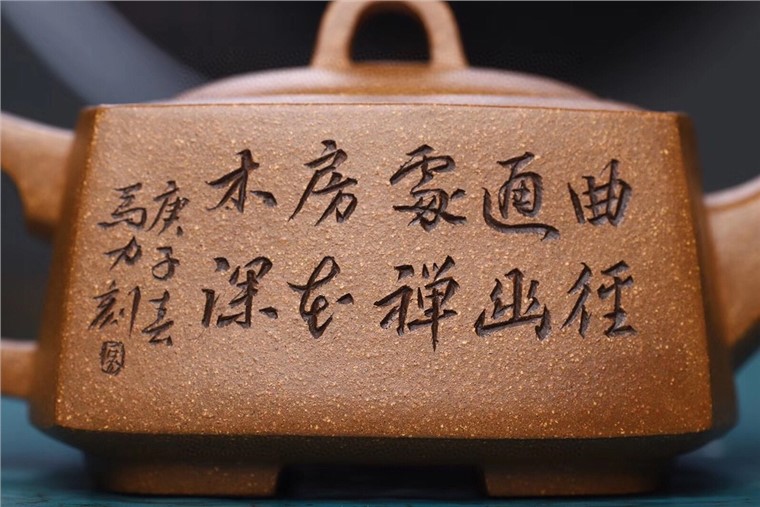 曲径
通幽
處禅
房花
木深
庚子春
馬力刻